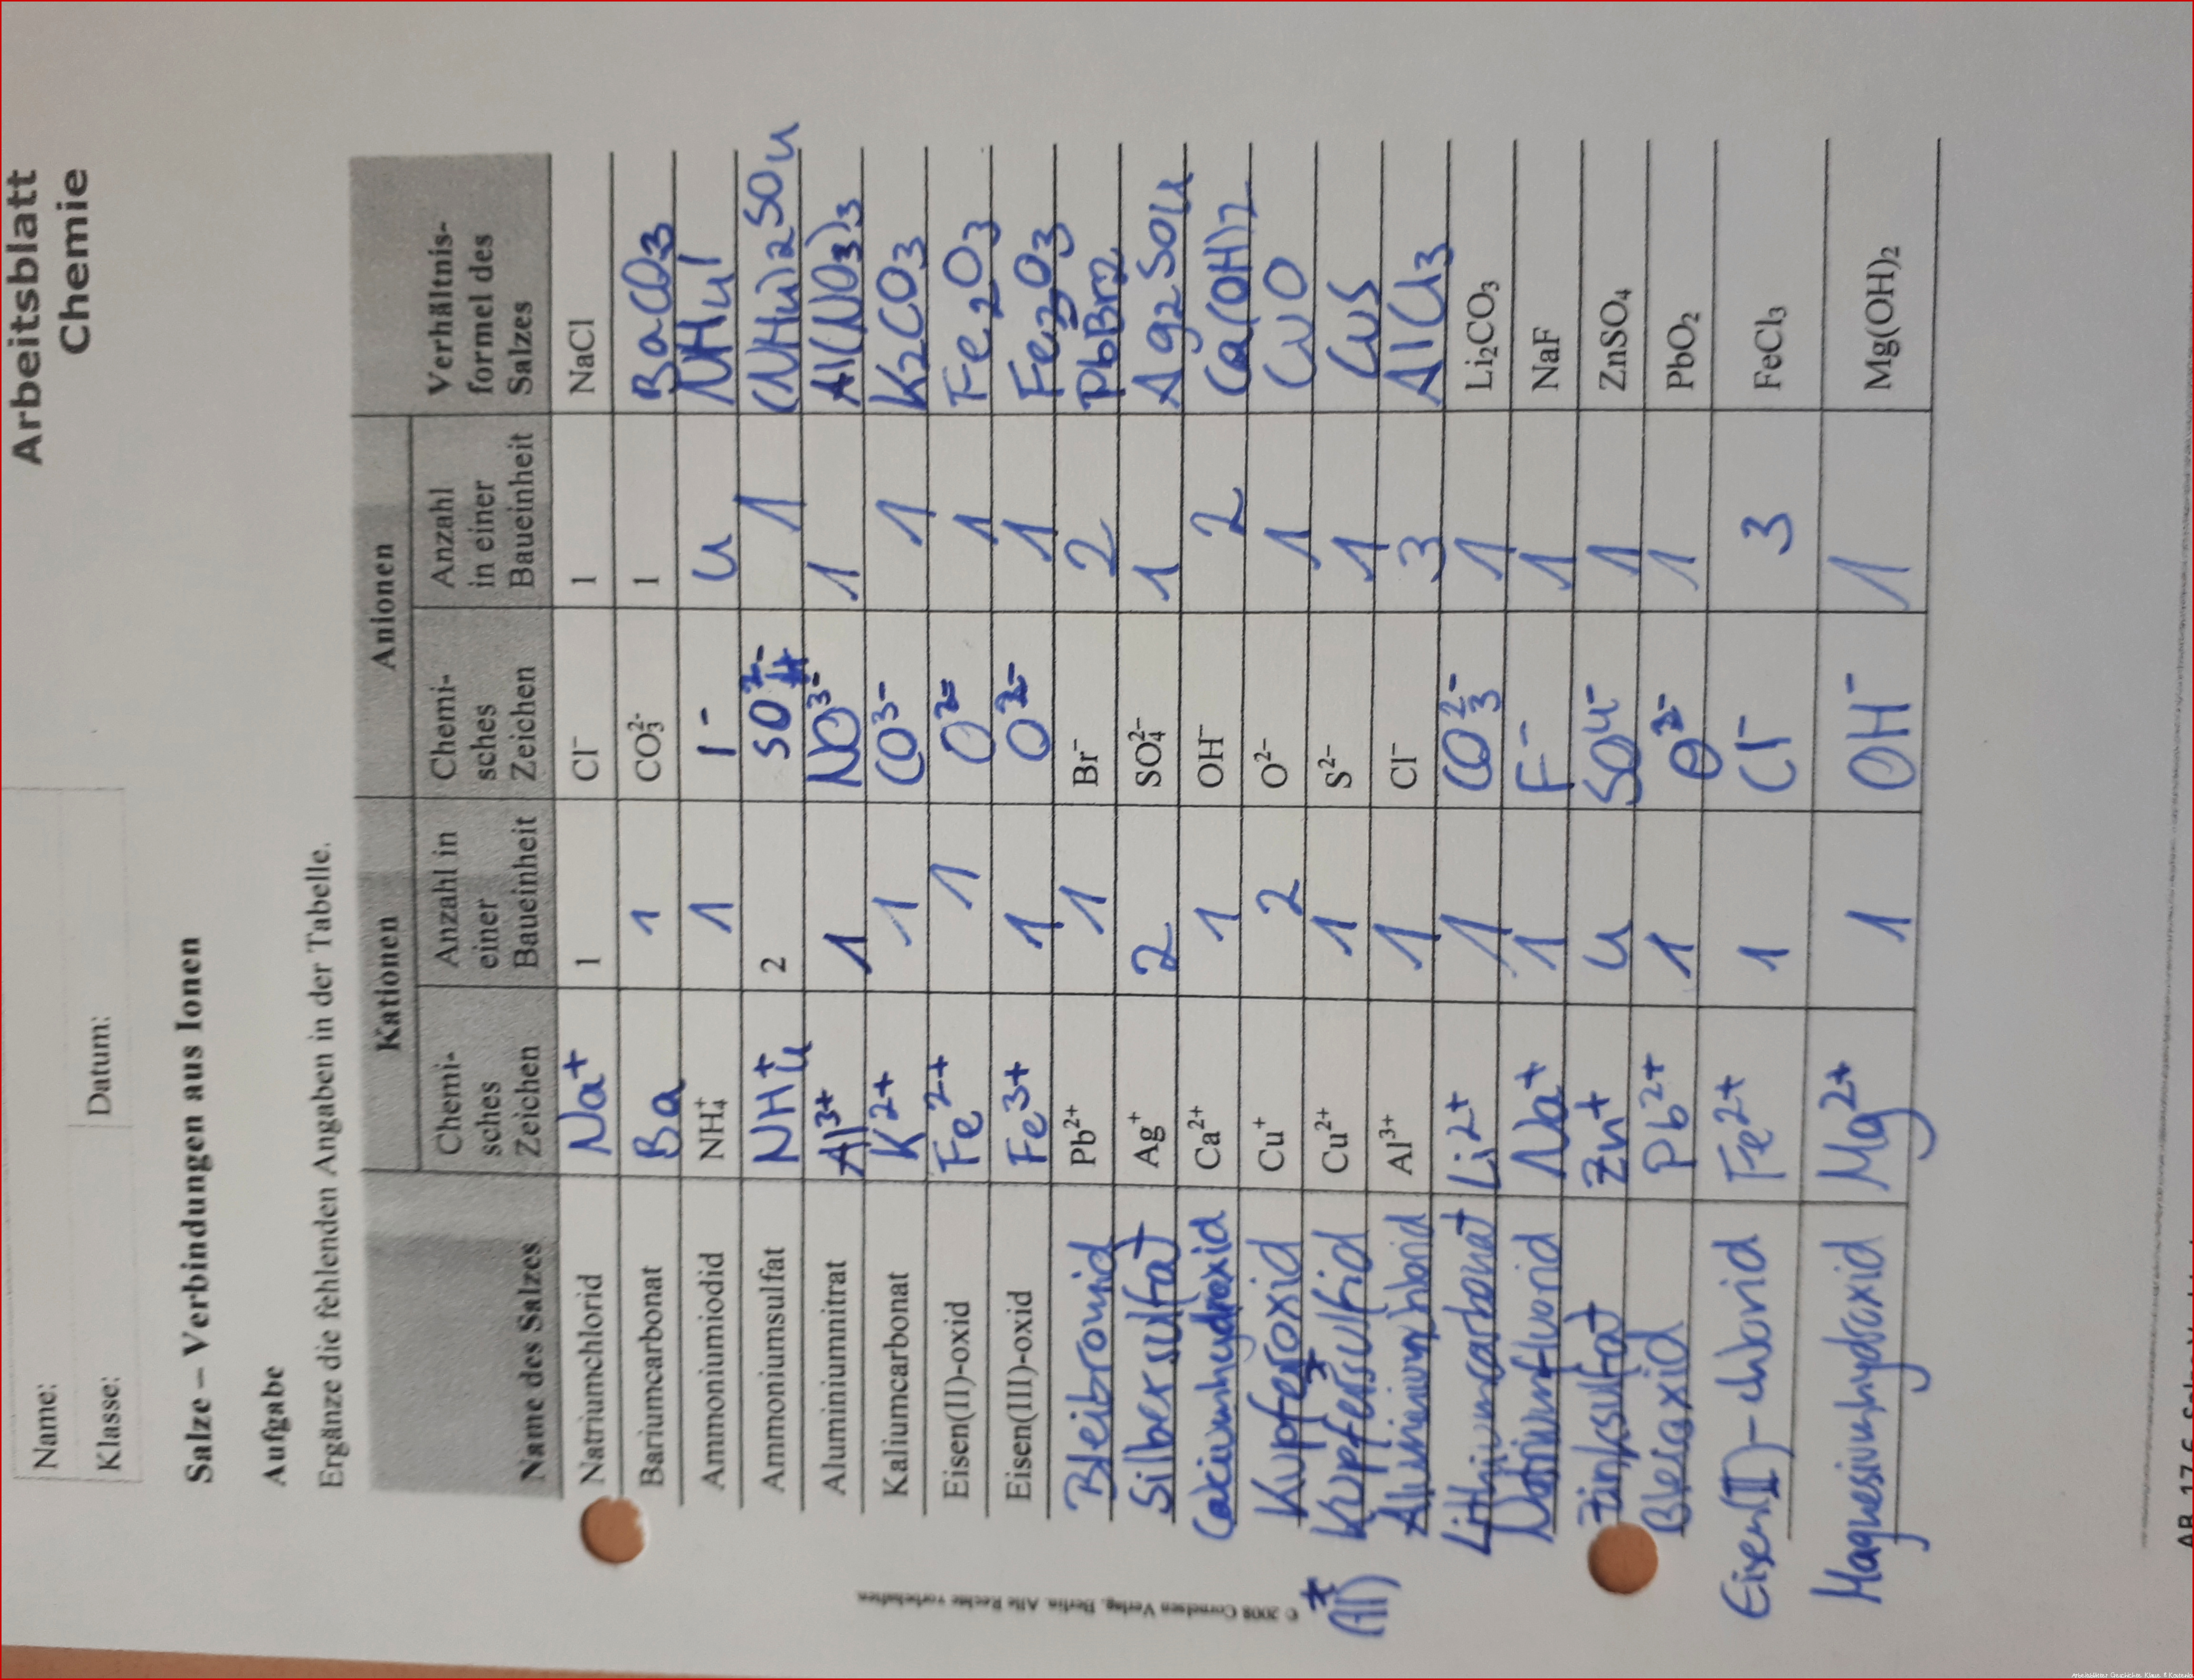 Arbeitsblatt
Chemie
Name:
Klasse:
Datum:
Salze – Verbindungen aus Ionen
Aufgabe
Ergänze die fehlenden Angaben in der Tabelle.
Kationen Anionen
Name des Salzes Chemi-sches Zeichen Anzahl in einer Baueinheit Chemi-sches Zeichen Anzahl in einer Baueinheit Verhältnis-formel des Salzes
Natriumchlorid Na+ 1 Cl⁻ 1 NaCl
Bariumcarbonat Ba 1 CO₃²⁻ 1 BaCO3
Ammoniumiodid NH₄⁺ 1 I- 4 NH4I
Ammoniumsulfat NH4+ 2 SO 1 (NH4)2SO4
Aluminiumnitrat Al3+ 1 NO3- 1 Al(NO3)3
Kaliumcarbonat K2+ 1 CO3- 1 K2CO3
Eisen(II)-oxid Fe2+ 1 O2- 1 Fe2O3
Eisen(III)-oxid Fe3+ 1 O2- 1 Fe2O3
Bleibromid Pb²⁺ 1 Br⁻ 2 PbBr2
Silbersulfat Ag⁺ 2 SO₄²⁻ 1 Ag2SO4
Calciumhydroxid Ca²⁺ 1 OH⁻ 2 Ca(OH)2
Kupferoxid Cu⁺ 2 O²⁻ 1 CuO
Kupfersulfid Cu²⁺ 1 S²⁻ 1 CuS
Aluminiumchlorid Al³⁺ 1 Cl⁻ 3 AlCl3
Lithiumcarbonat Li2+ 1 CO3 2- 1 Li₂CO₃
Natriumfluorid Na+ 1 F- 1 NaF
Zinksulfat Zn+ 4 SO4- 1 ZnSO₄
Bleioxid Pb2+ 1 O2- 1 PbO₂
Eisen(II)-chlorid Fe2+ 1 Cl- 3 FeCl₃
Magnesiumhydroxid Mg2+ 1 OH- 1 Mg(OH)₂
© 2008 Cornelsen Verlag, Berlin. Alle Rechte vorbehalten.